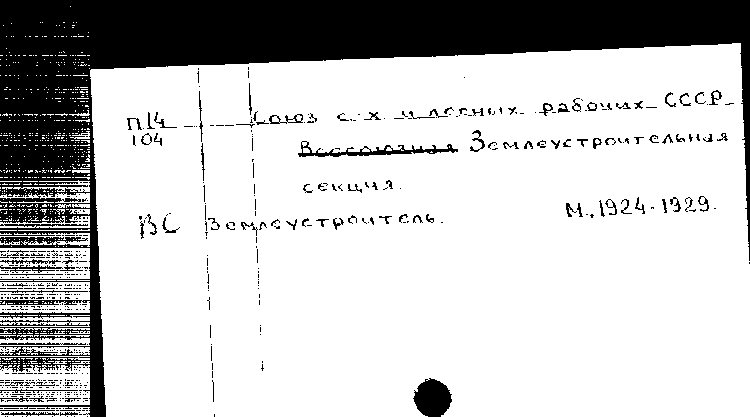 П14 Союз с. х. и лесных рабочих СССР
104
Всесоюзная Землеустроительная
секция.
ВС Землеустроитель. М., 1924-1929.